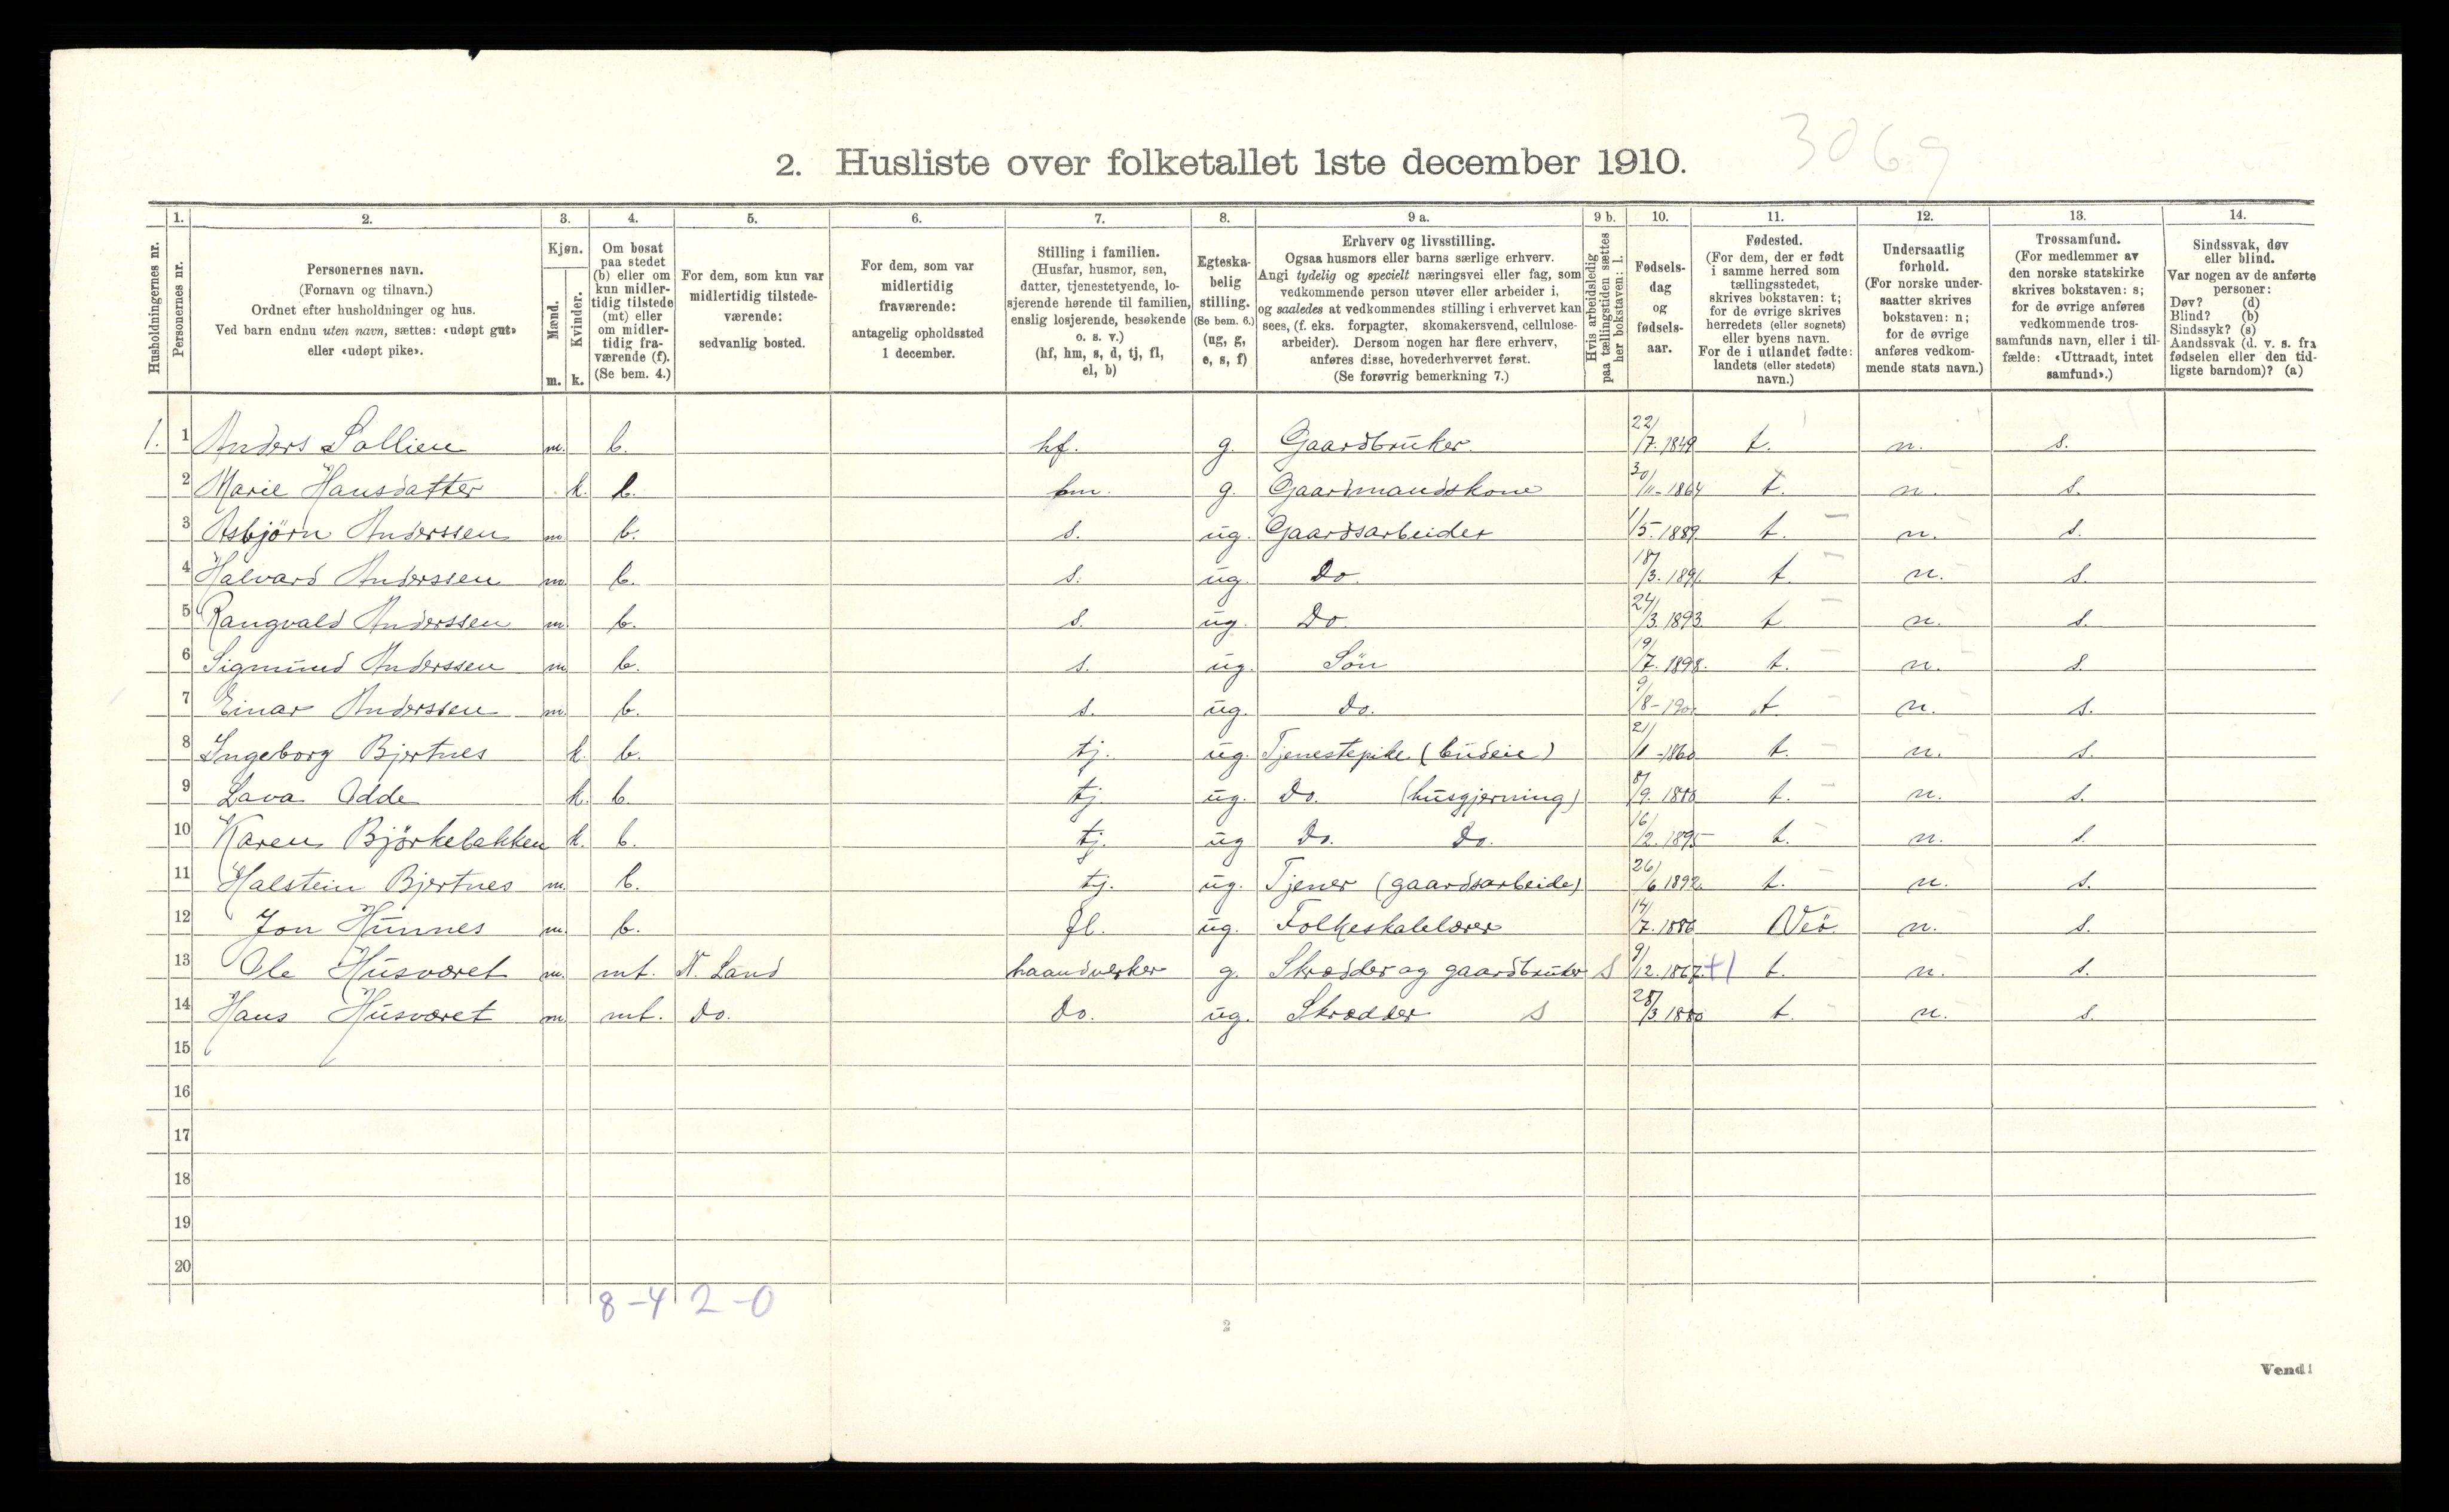 3069
2. Husliste over folketallet 1ste december 1910.
Husholdningernes nr.
1.
Personernes nr.
2.
Personernes navn.
(Fornavn og tilnavn.)
Ordnet efter husholdninger og hus.
Ved barn endnu uten navn, sættes: «udøpt gut»
eller «udøpt pike».
3.
Kjøn.
Mænd.
Kvinder.
m. k.
4.
Om bosat
paa stedet
(b) eller om
kun midler-
tidig tilstede
(mt) eller
om midler-
tidig fra-
værende (f).
(Se bem. 4.)
5.
For dem, som kun var
midlertidig tilstede-
værende:
sedvanlig bosted.
6.
For dem, som var
midlertidig
fraværende:
antagelig opholdssted
1 december.
7.
Stilling i familien.
(Husfar, husmor, søn,
datter, tjenestetyende, lo-
sjerende hørende til familien,
enslig losjerende, besøkende
o. s. v.)
(hf, hm, s, d, tj, fl,
el, b)
8.
Egteska-
belig
stilling.
(Se bem. 6.)
(ug, g,
e, s, f)
9 a.
Erhverv og livsstilling.
Ogsaa husmors eller barns særlige erhverv.
Angi tydelig og specielt næringsvei eller fag, som
vedkommende person utøver eller arbeider i,
og saaledes at vedkommendes stilling i erhvervet kan
sees, (f. eks. forpagter, skomakersvend, cellulose-
arbeider). Dersom nogen har flere erhverv,
anføres disse, hovederhvervet først.
(Se forøvrig bemerkning 7.)
9 b.
Hvis arbeidsledig
paa tællingstiden sættes
her bokstaven: l.
10.
Fødsels-
dag
og
fødsels-
aar.
11.
Fødested.
(For dem, der er født
i samme herred som
tællingsstedet,
skrives bokstaven: t;
for de øvrige skrives
herredets (eller sognets)
eller byens navn.
For de i utlandet fødte:
landets (eller stedets)
navn.)
12.
Undersaatlig
forhold.
(For norske under-
saatter skrives
bokstaven: n;
for de øvrige
anføres vedkom-
mende stats navn.)
13.
Trossamfund.
(For medlemmer av
den norske statskirke
skrives bokstaven: s;
for de øvrige anføres
vedkommende tros-
samfunds navn, eller i til-
fælde: «Uttraadt, intet
samfund».)
14.
Sindssvak, døv
eller blind.
Var nogen av de anførte
personer:
Døv? (d)
Blind? (b)
Sindssyk? (s)
Aandssvak (d. v. s. fra
fødselen eller den tid-
ligste barndom)? (a)
1. 1 Anders Sollien m. b. hf. g. Gaardbruker 22/7. 1849 t. n. s.
2 Marie Hansdatter k. b. hm. g. Gaardmandskone 30/11-1864 t. n. s.
3 Asbjörn Anderssen m. b. s. ug. Gaardsarbeider 1/5. 1889 t. n. s.
4 Halvard Anderssen m. b. s. ug. Do. 18/3. 1891. t. n. s.
5 Rangvald Anderssen m. b. s. ug. Do. 24/3. 1893. t. n. s.
6 Sigmund Anderssen m. b. s. ug. Sön 19/7. 1898. t. n. s.
7 Einar Anderssen m. b. s. ug. Do. 9/8-1900 t. n. s.
8 Ingeborg Bjertnes k. b. tj. ug. Tjenestepike (budeie) 21/1-1860 t. n. s.
9 Lava Odde k. b. tj. ug. Do. (husgjerning) 8/9. 1880 t. n. s.
10 Karen Björkebakken k. b. tj. ug Do. Do. 16/2. 1895 t. n. s.
11 Halstein Bjertnes m. b. tj. ug. Tjener (gaardsarbeide) 26/6 1892. t. n. s.
12 Jon Hunnes m. b. fl. ug. Folkeskolelærer 14/7. 1886 Veö n. s.
13 Ole Husværet m. mt. N. Land haandverker g. Skrædder og gaardbruker s 9/12. 1867. +1 t. n. s.
14 Hans Husværet m mt. Do. Do. ug. Skrædder s 28/3 1880 t. n. s.
15
16
17
18
19
20
8-4 2-0
2
Vend!